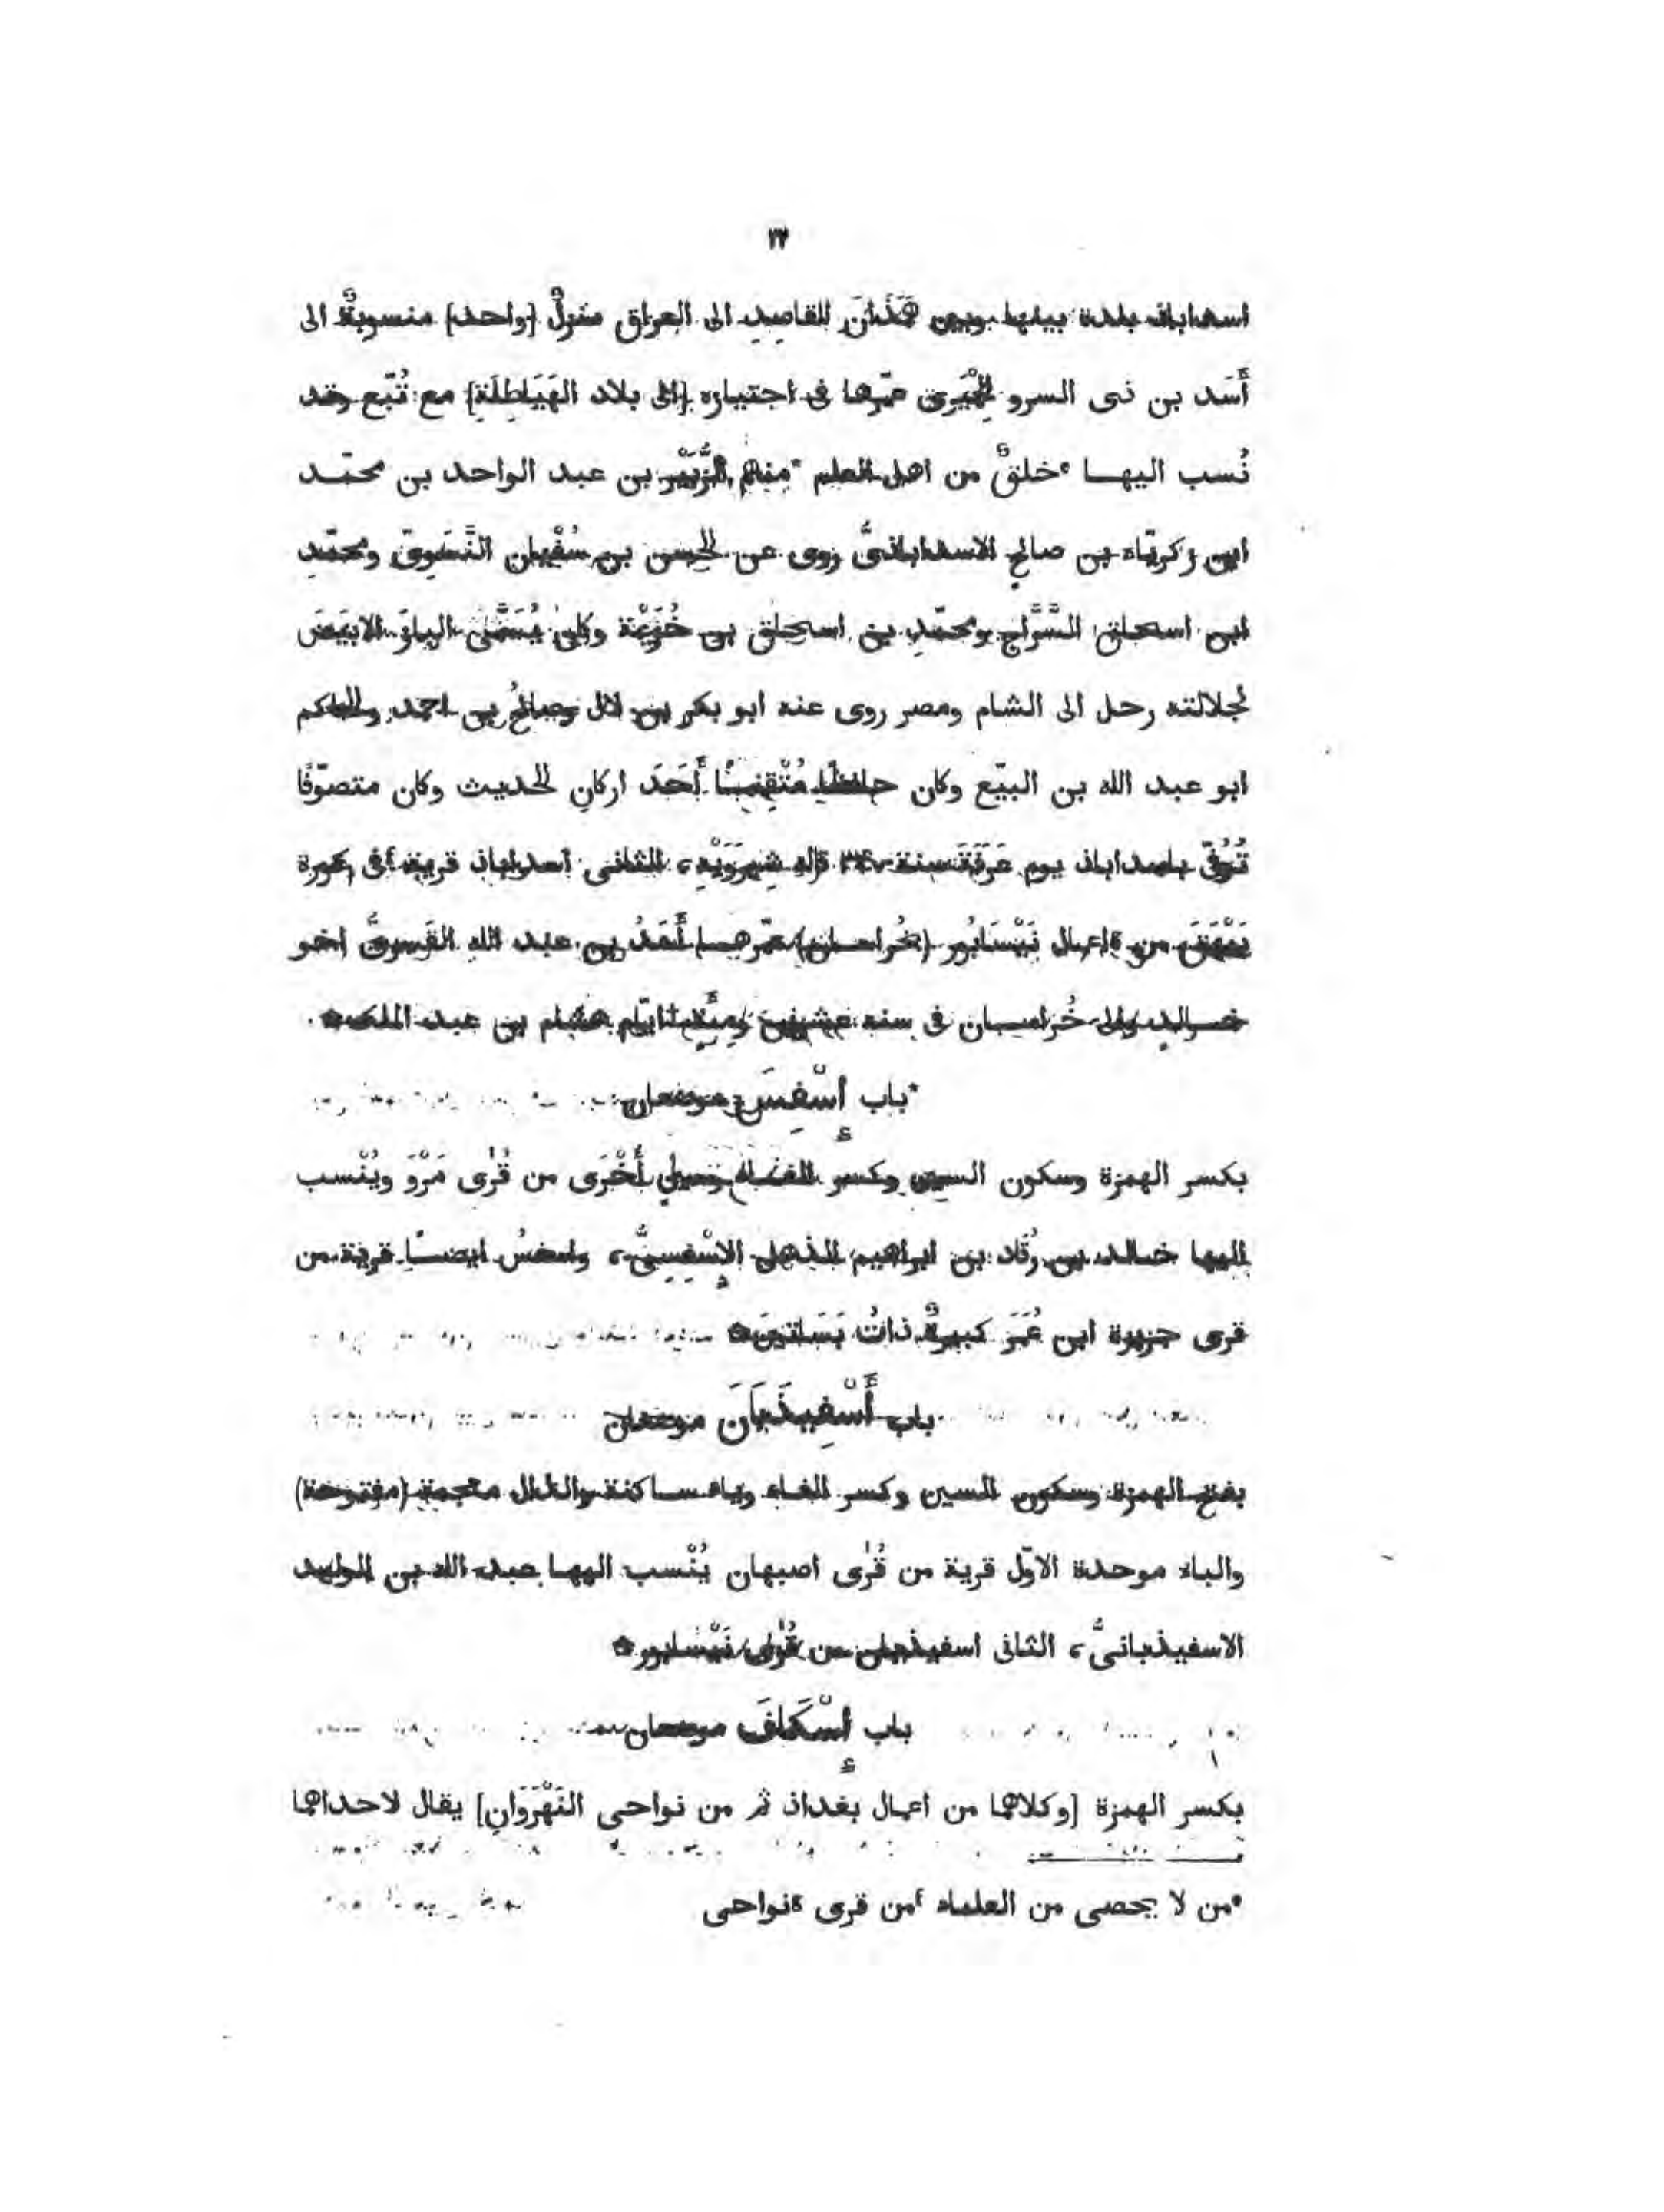 ٢٢
اسداباذ بلدة بينها وبين هَمَذَانَ للقاصِدِ الى العراق منزلٌ [واحد] منسوبةٌ الى
أَسَد بن ذى السرو الحِمْيَرى عمّرها فى اجتيازه [الى بلاد الهَيَاطِلَةِ] مع تُبّع وقد
نُسب اليها *خلقٌ من اهل العلم *منهم الزُّبَيْر بن عبد الواحد بن محمّد
ابن زكريّاء بن صالحٍ الاسداباذىُّ روى عن الحسن بن سُفْيان النَّسَوىّ ومحمّدِ
ابن اسحاق السَّرَّاج ومحمّدِ بن اسحاق بن خُزَيْمَة وكان يُسَمَّى الباز الابيَضَ
لجلالته رحل الى الشام ومصر روى عنه ابو بكر بن لال وصالحُ بن احمد والحاكم
ابو عبد الله بن البيّع وكان حافظًا مُتْقِنًا أَحَدَ اركانِ الحديث وكان متصوّفًا
تُوُفّى باسداباذ يوم عَرَفَةَ سنة ٣٤٧ قاله شِيرَوَيْهِ، الثانى اسداباذ قرية أفى كورة
بَيْهَقَ من ةاعمال نَيْسَابُور (بخُراسان) عمّرها أَسَدُ بن عبد الله القَسرىُّ اخو
خالدٍ والى خُراسان فى سنة عشرين ومِئَةٍ ايّام هشام بن عبد الملك ۞
*باب إِسْفِسَ موضعان
بكسر الهمزة وسكون السين وكسر الفاء وسينٍ أُخْرَى من قُرٰى مَرْوَ ويُنْسب
اليها خالد بن رُقَاد بن ابراهيم الذهلى الإِسْفِسِىُّ، واسفسُ ايضًا قرية من
قرى جزيرة ابن عُمَرَ كبيرةٌ ذاتُ بَسَاتينَ ۞
باب أَسْفِيذَبَانَ موضعان
بفتح الهمزة وسكون السين وكسر الفاء وياء ساكنة والذال معجمة (مفتوحة)
والباء موحدة الاوّل قرية من قُرٰى اصبهان يُنْسب اليها عبد الله بن الوليد
الاسفيذبانىُّ، الثانى اسفيذبان من قُرٰى نَيْسابور ۞
باب إِسْكَافَ موضعان
بكسر الهمزة [وكلاهما من اعمال بغداذ ثم من نواحى النَهْرَوَانِ] يقال لاحداهما
*من لا يحصى من العلماء أمن قرى ةنواحى